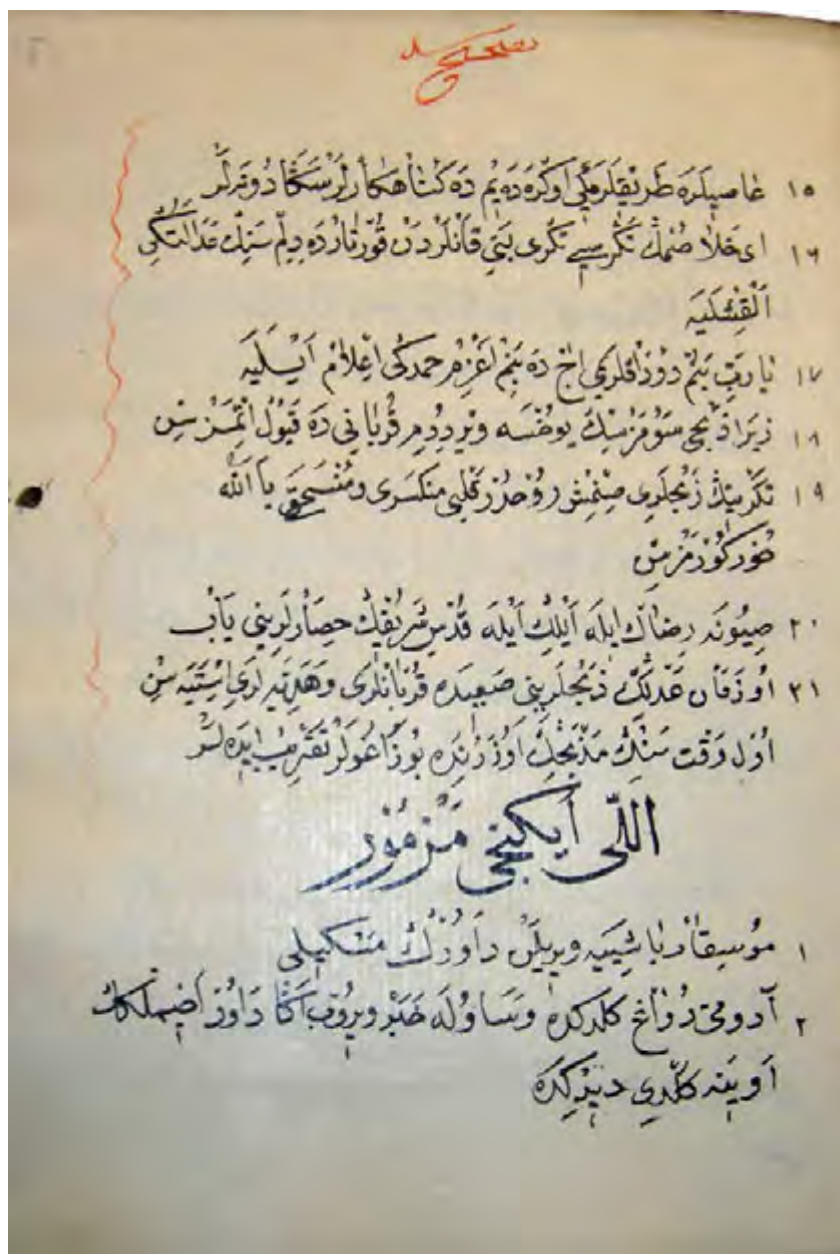 ١٥ عاصيلره طريقلرڭى اوكره ده‌يم ده كناهكارلر سكا دونرلر
١٦ اى خلاصمڭ تكريسى تكرى بنى قانلردن قورتار ده ديلم سنڭ عدالتڭى
القشليه
١٧ يا رب بنم دوداقلرمى اچ ده بنم اغزم حمدڭى اعلام ايليه
١٨ زيرا ذبحى سومزسڭ يوخسه ويردم قربانى ده قبول اتمزسن
١٩ تكرينڭ ذبحلرى صنمش روحدر قلبى منكسرى ومنسحقى يا الله
خور كورمزسن
٢٠ صيونه رضاڭ ايله ايلك ايله قدس شريفڭ حصارلرينى ياپ
٢١ او زمان عدلڭ ذبحلرينى صعيده قربانلرى وهديه لرى استيه سن
اول وقت سنڭ مذبحڭ اوزرنده بوزاغولر تقريب ايده لر
اللى ايكنجى مزمور
١ موسيقار باشييه ويريلن داودڭ مسكيلى
٢ آدومى دواغ كلدكده وساوله خبر ويروب اكا داود اخيملكڭ
اوينه كلدى ديدكده